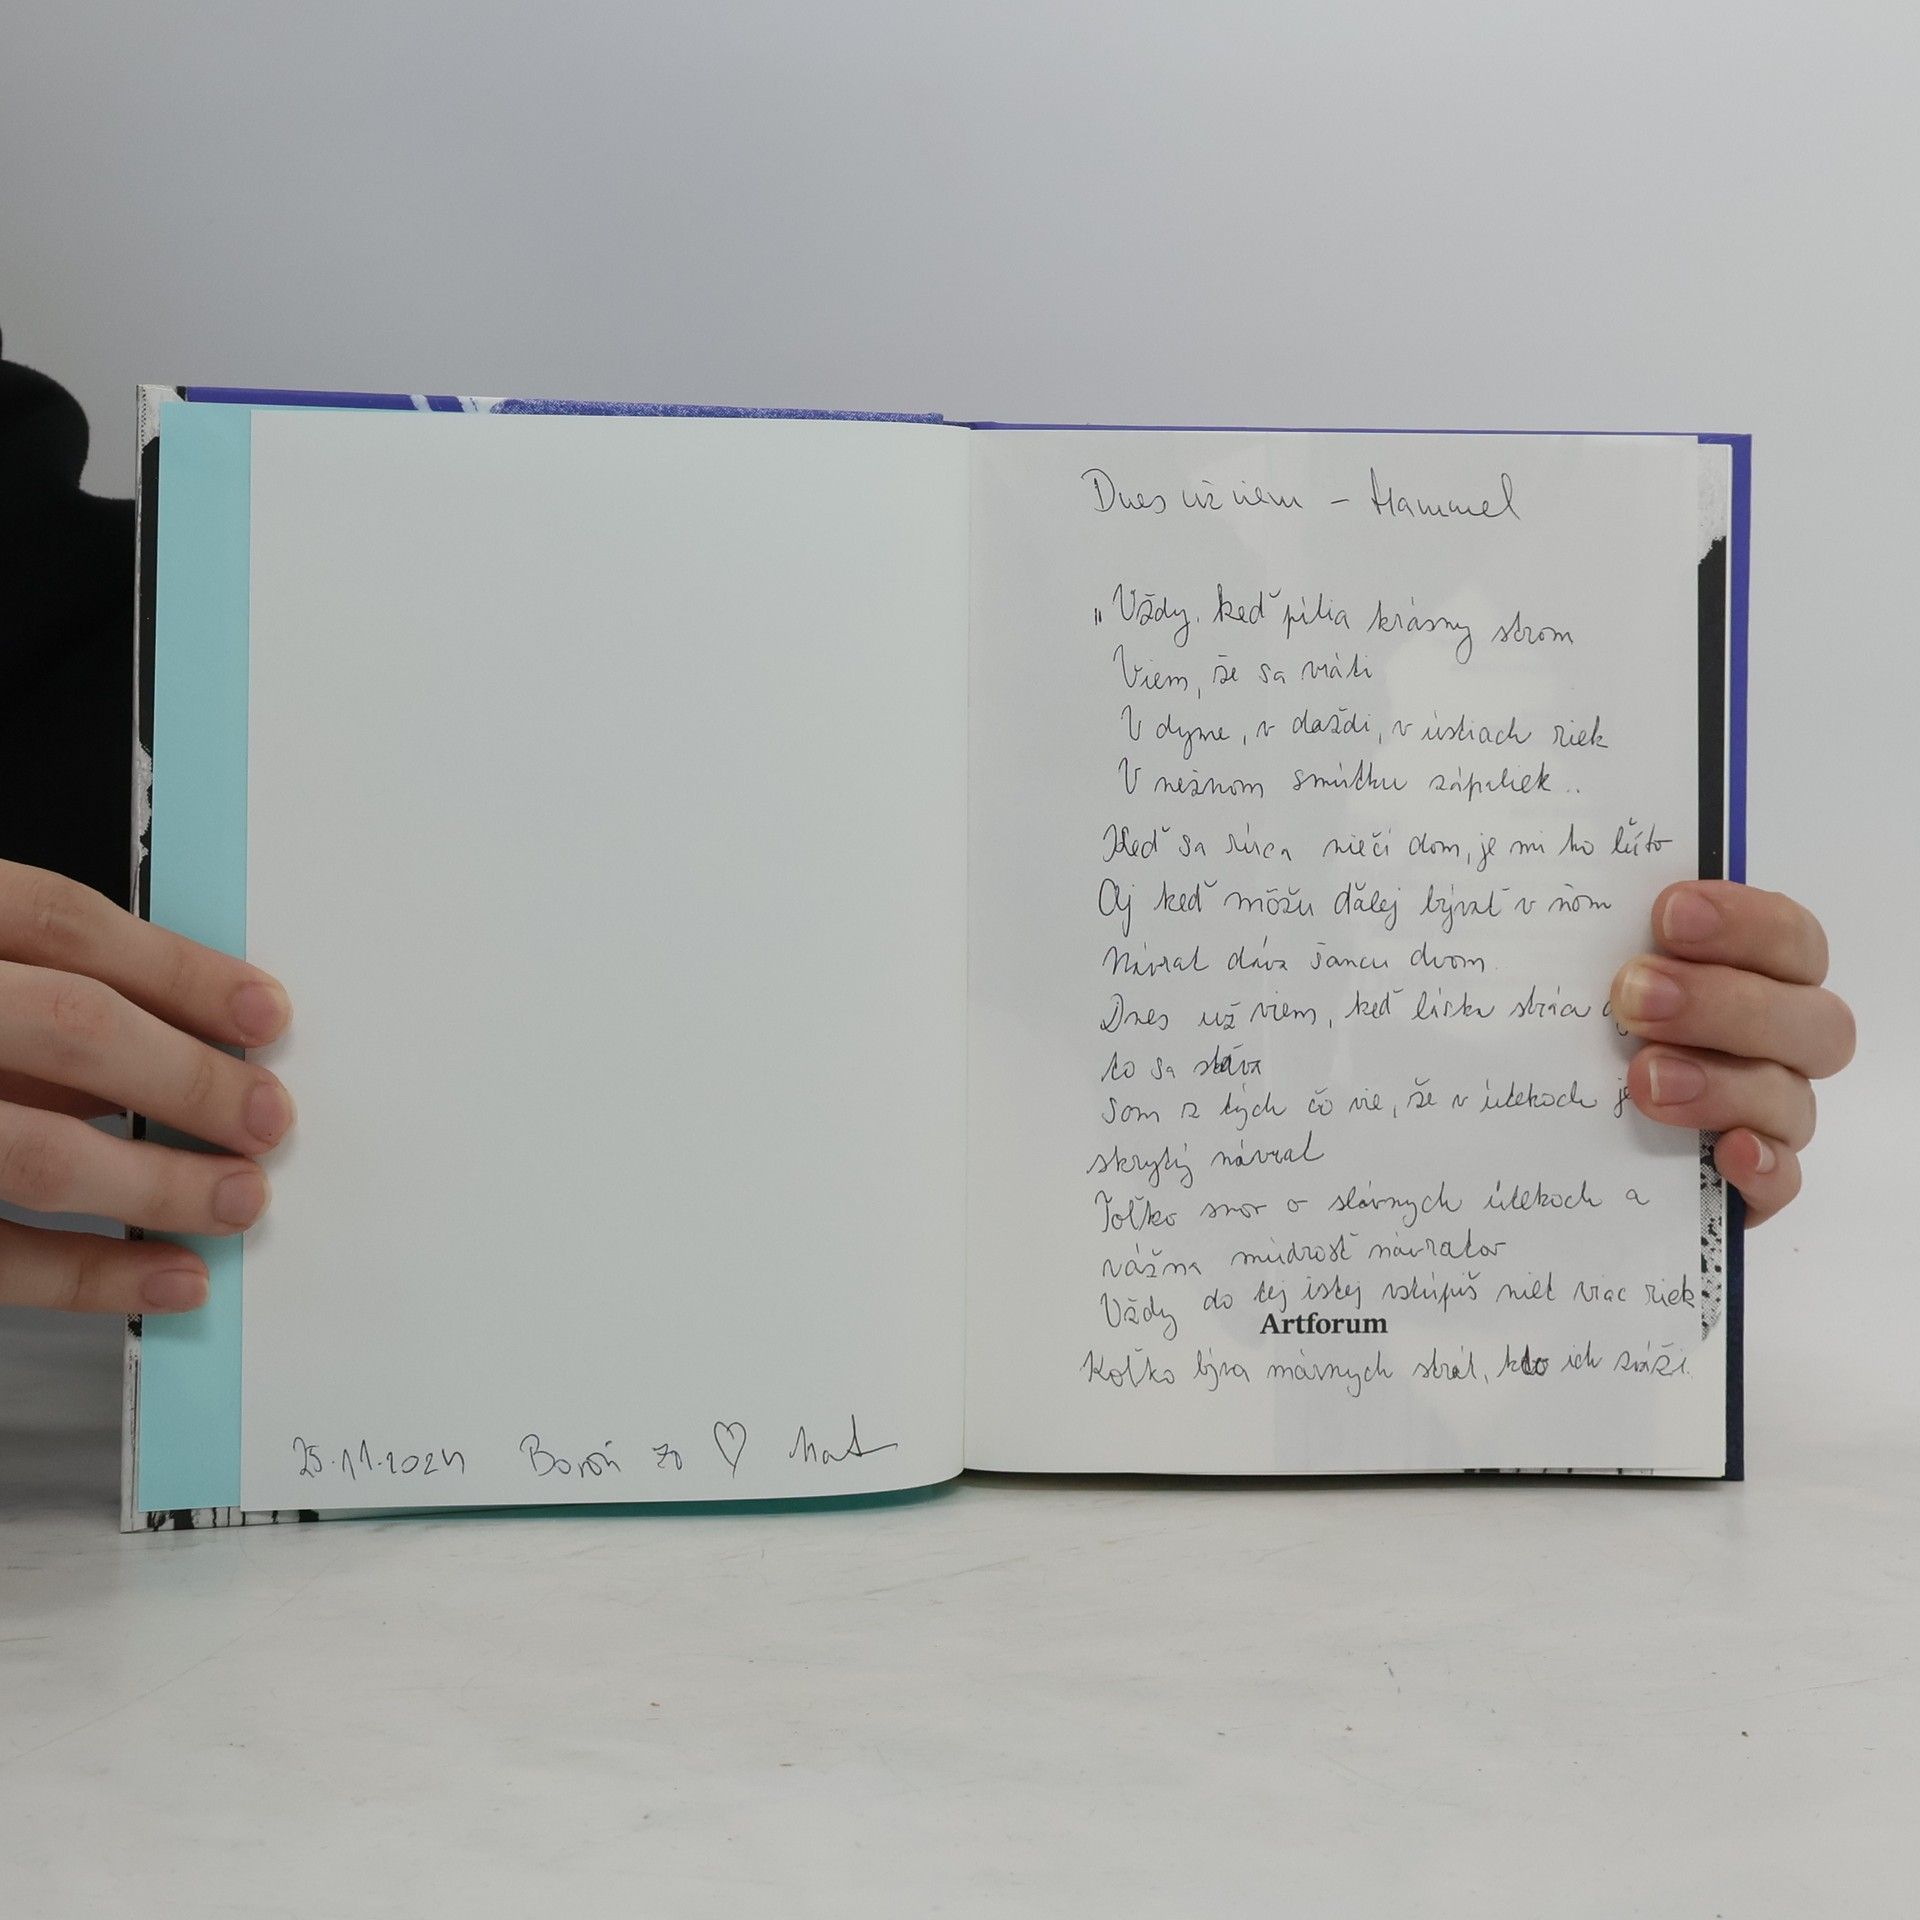 25.11.2024 Boroň zo ♡ Mat
Dnes už viem - Hammel
"Vždy, keď pília krásny strom
Viem, že sa vráti
V dyme, v daždi, v ústiach riek
V nežnom smútku zápaliek..
Keď sa rúca niečí dom, je mi ho ľúto
Aj keď môžu ďalej bývať v ňom
Návrat dáva šancu dvom
Dnes už viem, keď láska stráca
to sa stáva
Som z tých čo vie, že v útekoch je
skrytý návrat
Toľko snov o slávnych útekoch a
vážna múdrosť návratov
Vždy do tej istej vstúpiš niet viac riek
Artforum
Koľko býva márnych strát, kto ich zváži.